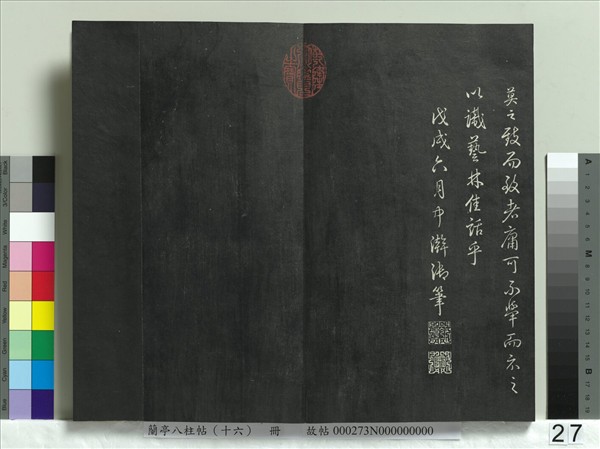 莫之致而致者庸可不舉而示之
以識藝林佳話乎
戊戌六月中澣御筆
蘭亭八柱帖(十六) 冊 故帖 000273N000000000
27
Black
3/Color
White
Magenta
Red
Yellow
Green
Cyan
Blue
A 1 2 3 4 5 6 M 8 9 10 11 12 13 14 15 B 17 18 19